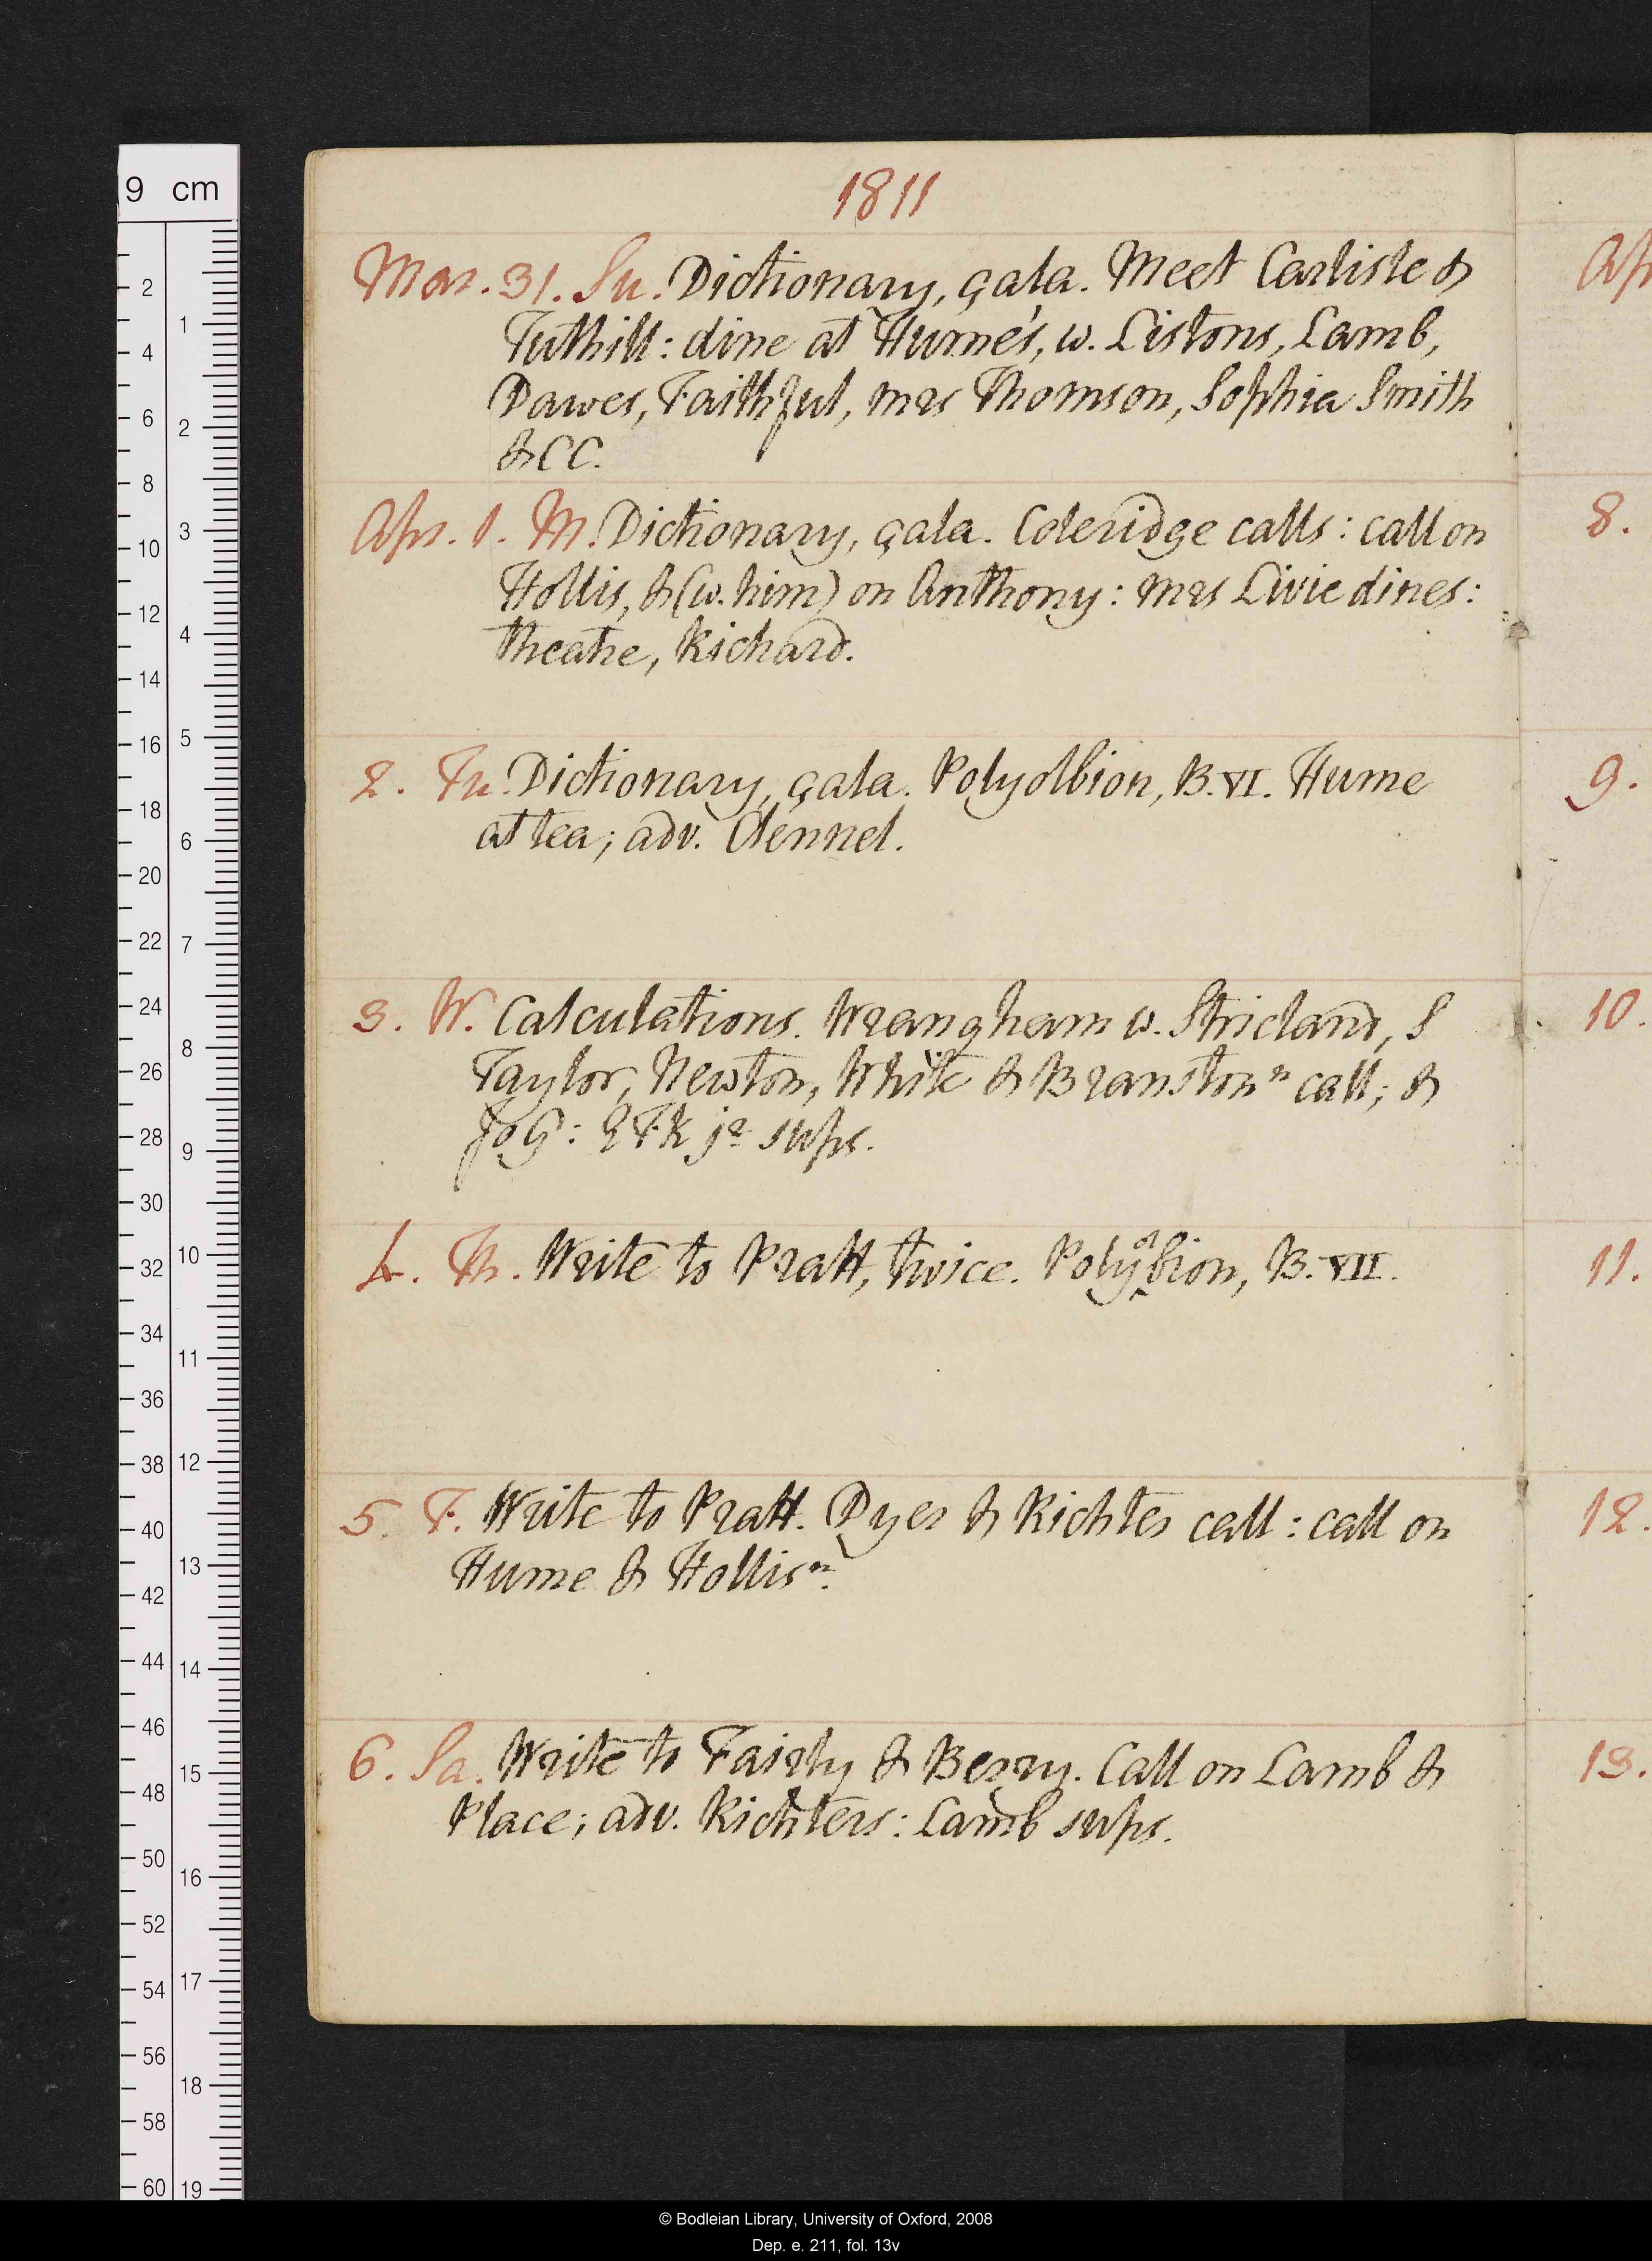 1811
Mar. 31. Su. Dictionary, çala. Meet Carlisle &
Tuthill: dine at Hume's, w. Listons, Lamb,
Dawes, Faithful, mrs Thomson, Sophia Smith
& CC.
Apr. 1. M. Dictionary, çala. Coleridge calls: call on
Hollis, & (w. him) on Anthony: mrs Livie dines:
theatre, Richard.
2. Tu. Dictionary, çala. Polyolbion, B. VI. Hume
at tea; adv. Clennel.
3. W. Calculations. Wrangham w. Stricland, S
Taylor, Newton, White & Branston n call; &
Jo G: ETK jr sups.
4. Th. Write to Pratt, twice. Polyolbion, B. VII.
5. F. Write to Pratt. Dyer & Richter call: call on
Hume & Hollis n.
6. Sa. Write to Fairly & Berry. Call on Lamb &
Place; adv. Richters: Lamb sups.
Ap
8.
9.
10.
11.
12.
13.
9 cm
2
4
6
8
10
12
14
16
18
20
22
24
26
28
30
32
34
36
38
40
42
44
46
48
50
52
54
56
58
60
1
2
3
4
5
6
7
8
9
10
11
12
13
14
15
16
17
18
19
© Bodleian Library, University of Oxford, 2008
Dep. e. 211, fol. 13v